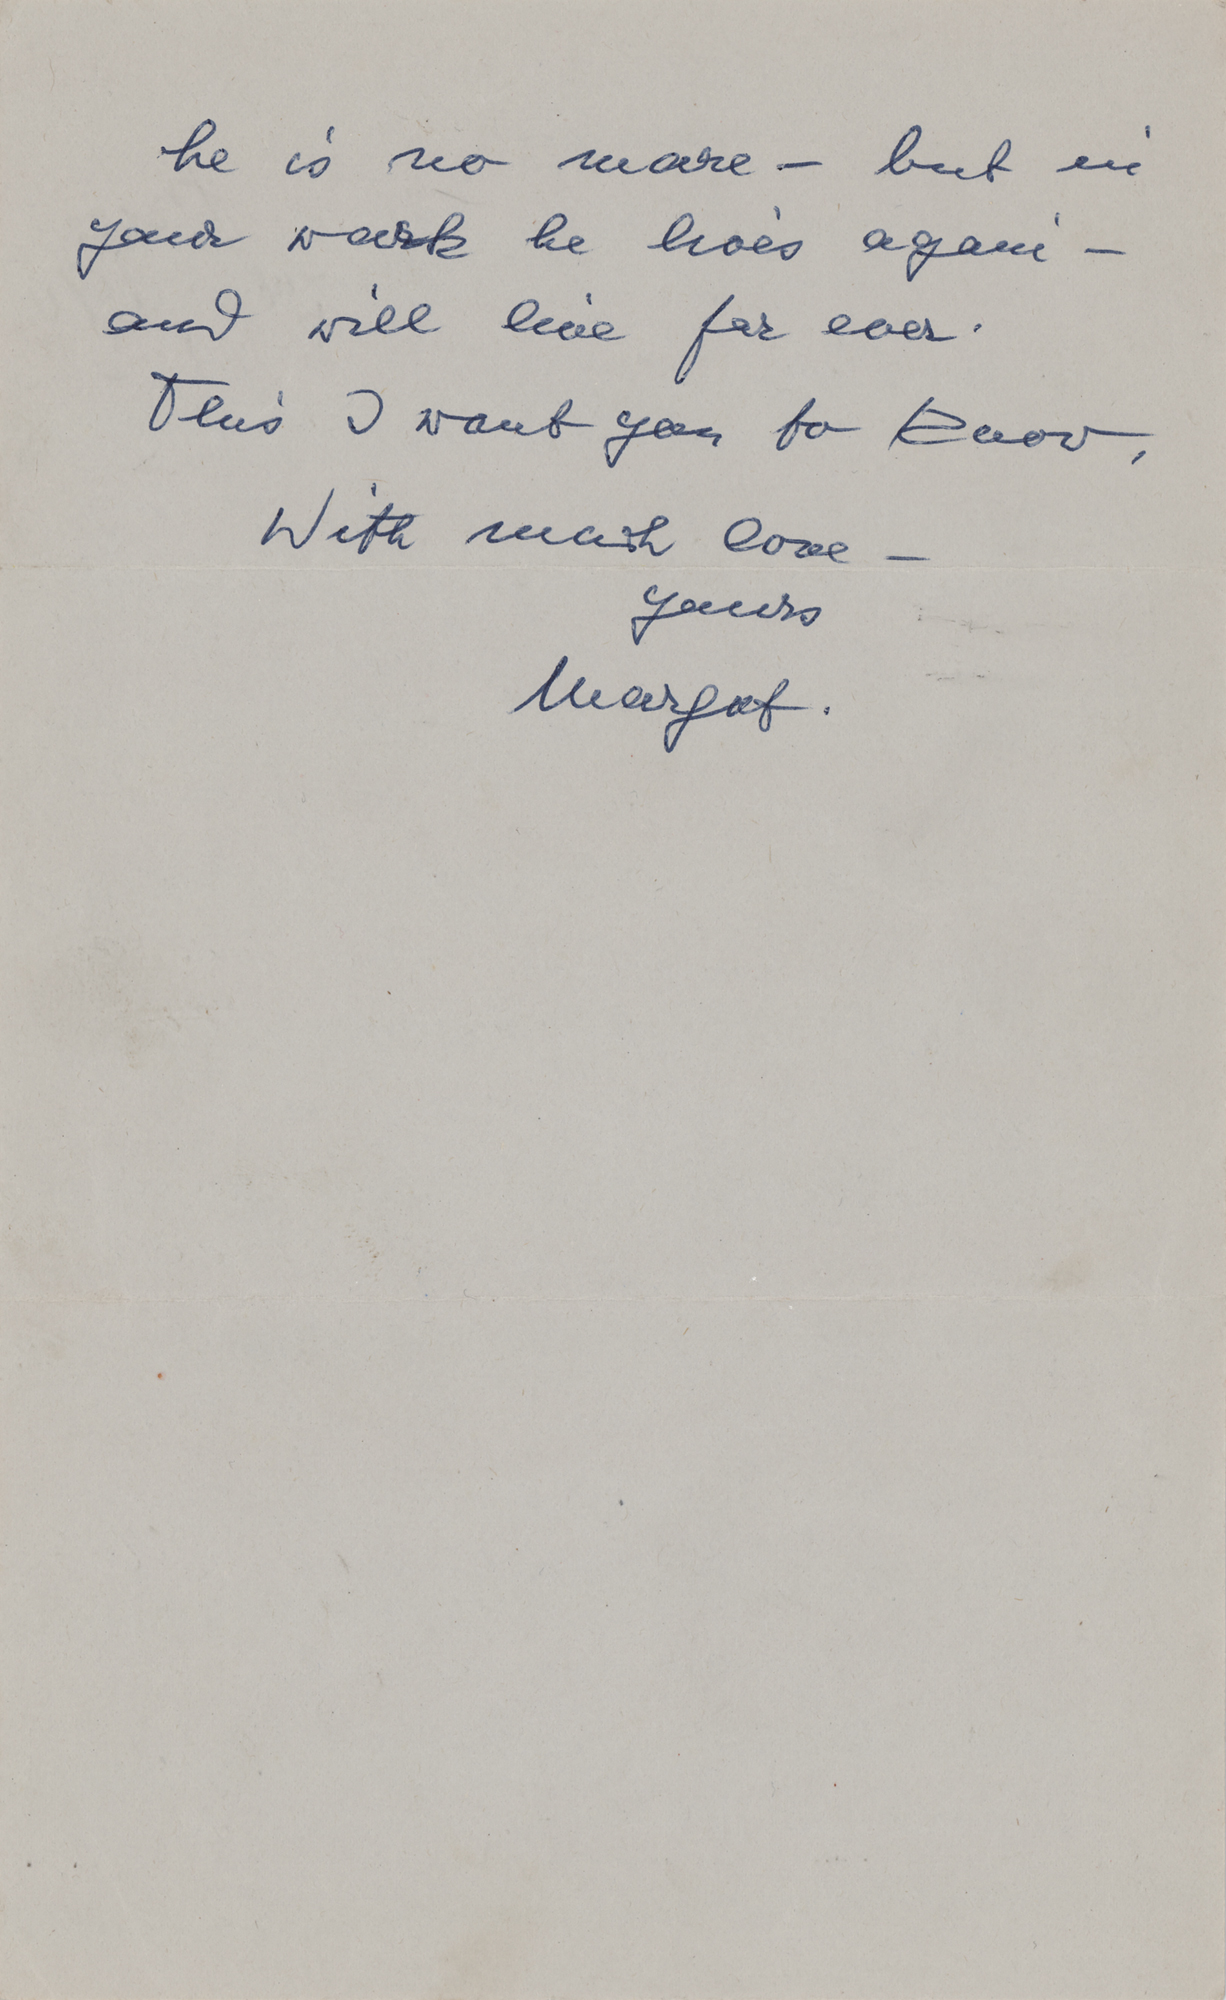 he is no more – but in
your work he lives again –
and will live for ever.
This I want you to know,
With much love –
yours
Margot.